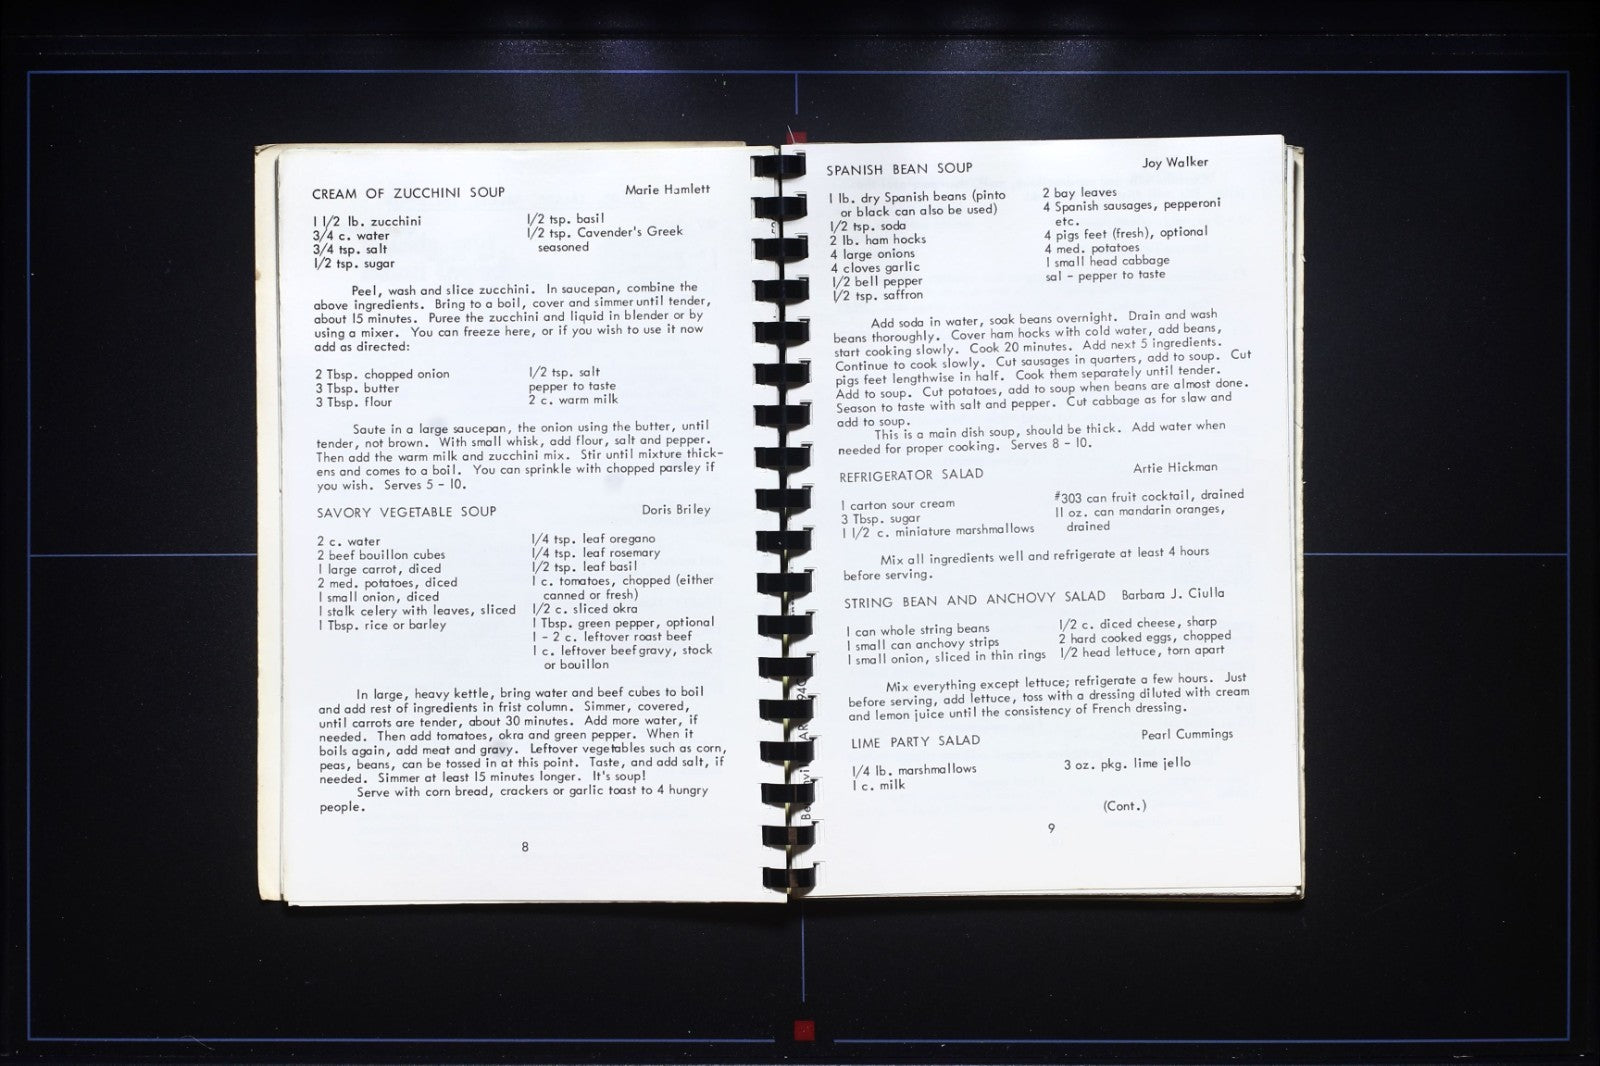 CREAM OF ZUCCHINI SOUP Marie Hamlett
1 1/2 lb. zucchini
3/4 c. water
3/4 tsp. salt
1/2 tsp. sugar
1/2 tsp. basil
1/2 tsp. Cavender's Greek
seasoned
Peel, wash and slice zucchini. In saucepan, combine the
above ingredients. Bring to a boil, cover and simmer until tender,
about 15 minutes. Puree the zucchini and liquid in blender or by
using a mixer. You can freeze here, or if you wish to use it now
add as directed:
2 Tbsp. chopped onion
3 Tbsp. butter
3 Tbsp. flour
1/2 tsp. salt
pepper to taste
2 c. warm milk
Saute in a large saucepan, the onion using the butter, until
tender, not brown. With small whisk, add flour, salt and pepper.
Then add the warm milk and zucchini mix. Stir until mixture thick-
ens and comes to a boil. You can sprinkle with chopped parsley if
you wish. Serves 5 - 10.
SAVORY VEGETABLE SOUP Doris Briley
2 c. water
2 beef bouillon cubes
1 large carrot, diced
2 med. potatoes, diced
1 small onion, diced
1 stalk celery with leaves, sliced
1 Tbsp. rice or barley
1/4 tsp. leaf oregano
1/4 tsp. leaf rosemary
1/2 tsp. leaf basil
1 c. tomatoes, chopped (either
canned or fresh)
1/2 c. sliced okra
1 Tbsp. green pepper, optional
1 - 2 c. leftover roast beef
1 c. leftover beef gravy, stock
or bouillon
In large, heavy kettle, bring water and beef cubes to boil
and add rest of ingredients in frist column. Simmer, covered,
until carrots are tender, about 30 minutes. Add more water, if
needed. Then add tomatoes, okra and green pepper. When it
boils again, add meat and gravy. Leftover vegetables such as corn,
peas, beans, can be tossed in at this point. Taste, and add salt, if
needed. Simmer at least 15 minutes longer. It's soup!
Serve with corn bread, crackers or garlic toast to 4 hungry
people.
8
SPANISH BEAN SOUP Joy Walker
1 lb. dry Spanish beans (pinto
or black can also be used)
1/2 tsp. soda
2 lb. ham hocks
4 large onions
4 cloves garlic
1/2 bell pepper
1/2 tsp. saffron
2 bay leaves
4 Spanish sausages, pepperoni
etc.
4 pigs feet (fresh), optional
4 med. potatoes
1 small head cabbage
sal - pepper to taste
Add soda in water, soak beans overnight. Drain and wash
beans thoroughly. Cover ham hocks with cold water, add beans,
start cooking slowly. Cook 20 minutes. Add next 5 ingredients.
Continue to cook slowly. Cut sausages in quarters, add to soup. Cut
pigs feet lengthwise in half. Cook them separately until tender.
Add to soup. Cut potatoes, add to soup when beans are almost done.
Season to taste with salt and pepper. Cut cabbage as for slaw and
add to soup.
This is a main dish soup, should be thick. Add water when
needed for proper cooking. Serves 8 - 10.
REFRIGERATOR SALAD Artie Hickman
1 carton sour cream
3 Tbsp. sugar
1 1/2 c. miniature marshmallows
#303 can fruit cocktail, drained
11 oz. can mandarin oranges,
drained
Mix all ingredients well and refrigerate at least 4 hours
before serving.
STRING BEAN AND ANCHOVY SALAD Barbara J. Ciulla
1 can whole string beans
1 small can anchovy strips
1 small onion, sliced in thin rings
1/2 c. diced cheese, sharp
2 hard cooked eggs, chopped
1/2 head lettuce, torn apart
Mix everything except lettuce; refrigerate a few hours. Just
before serving, add lettuce, toss with a dressing diluted with cream
and lemon juice until the consistency of French dressing.
LIME PARTY SALAD Pearl Cummings
1/4 lb. marshmallows
1 c. milk
3 oz. pkg. lime jello
(Cont.)
9